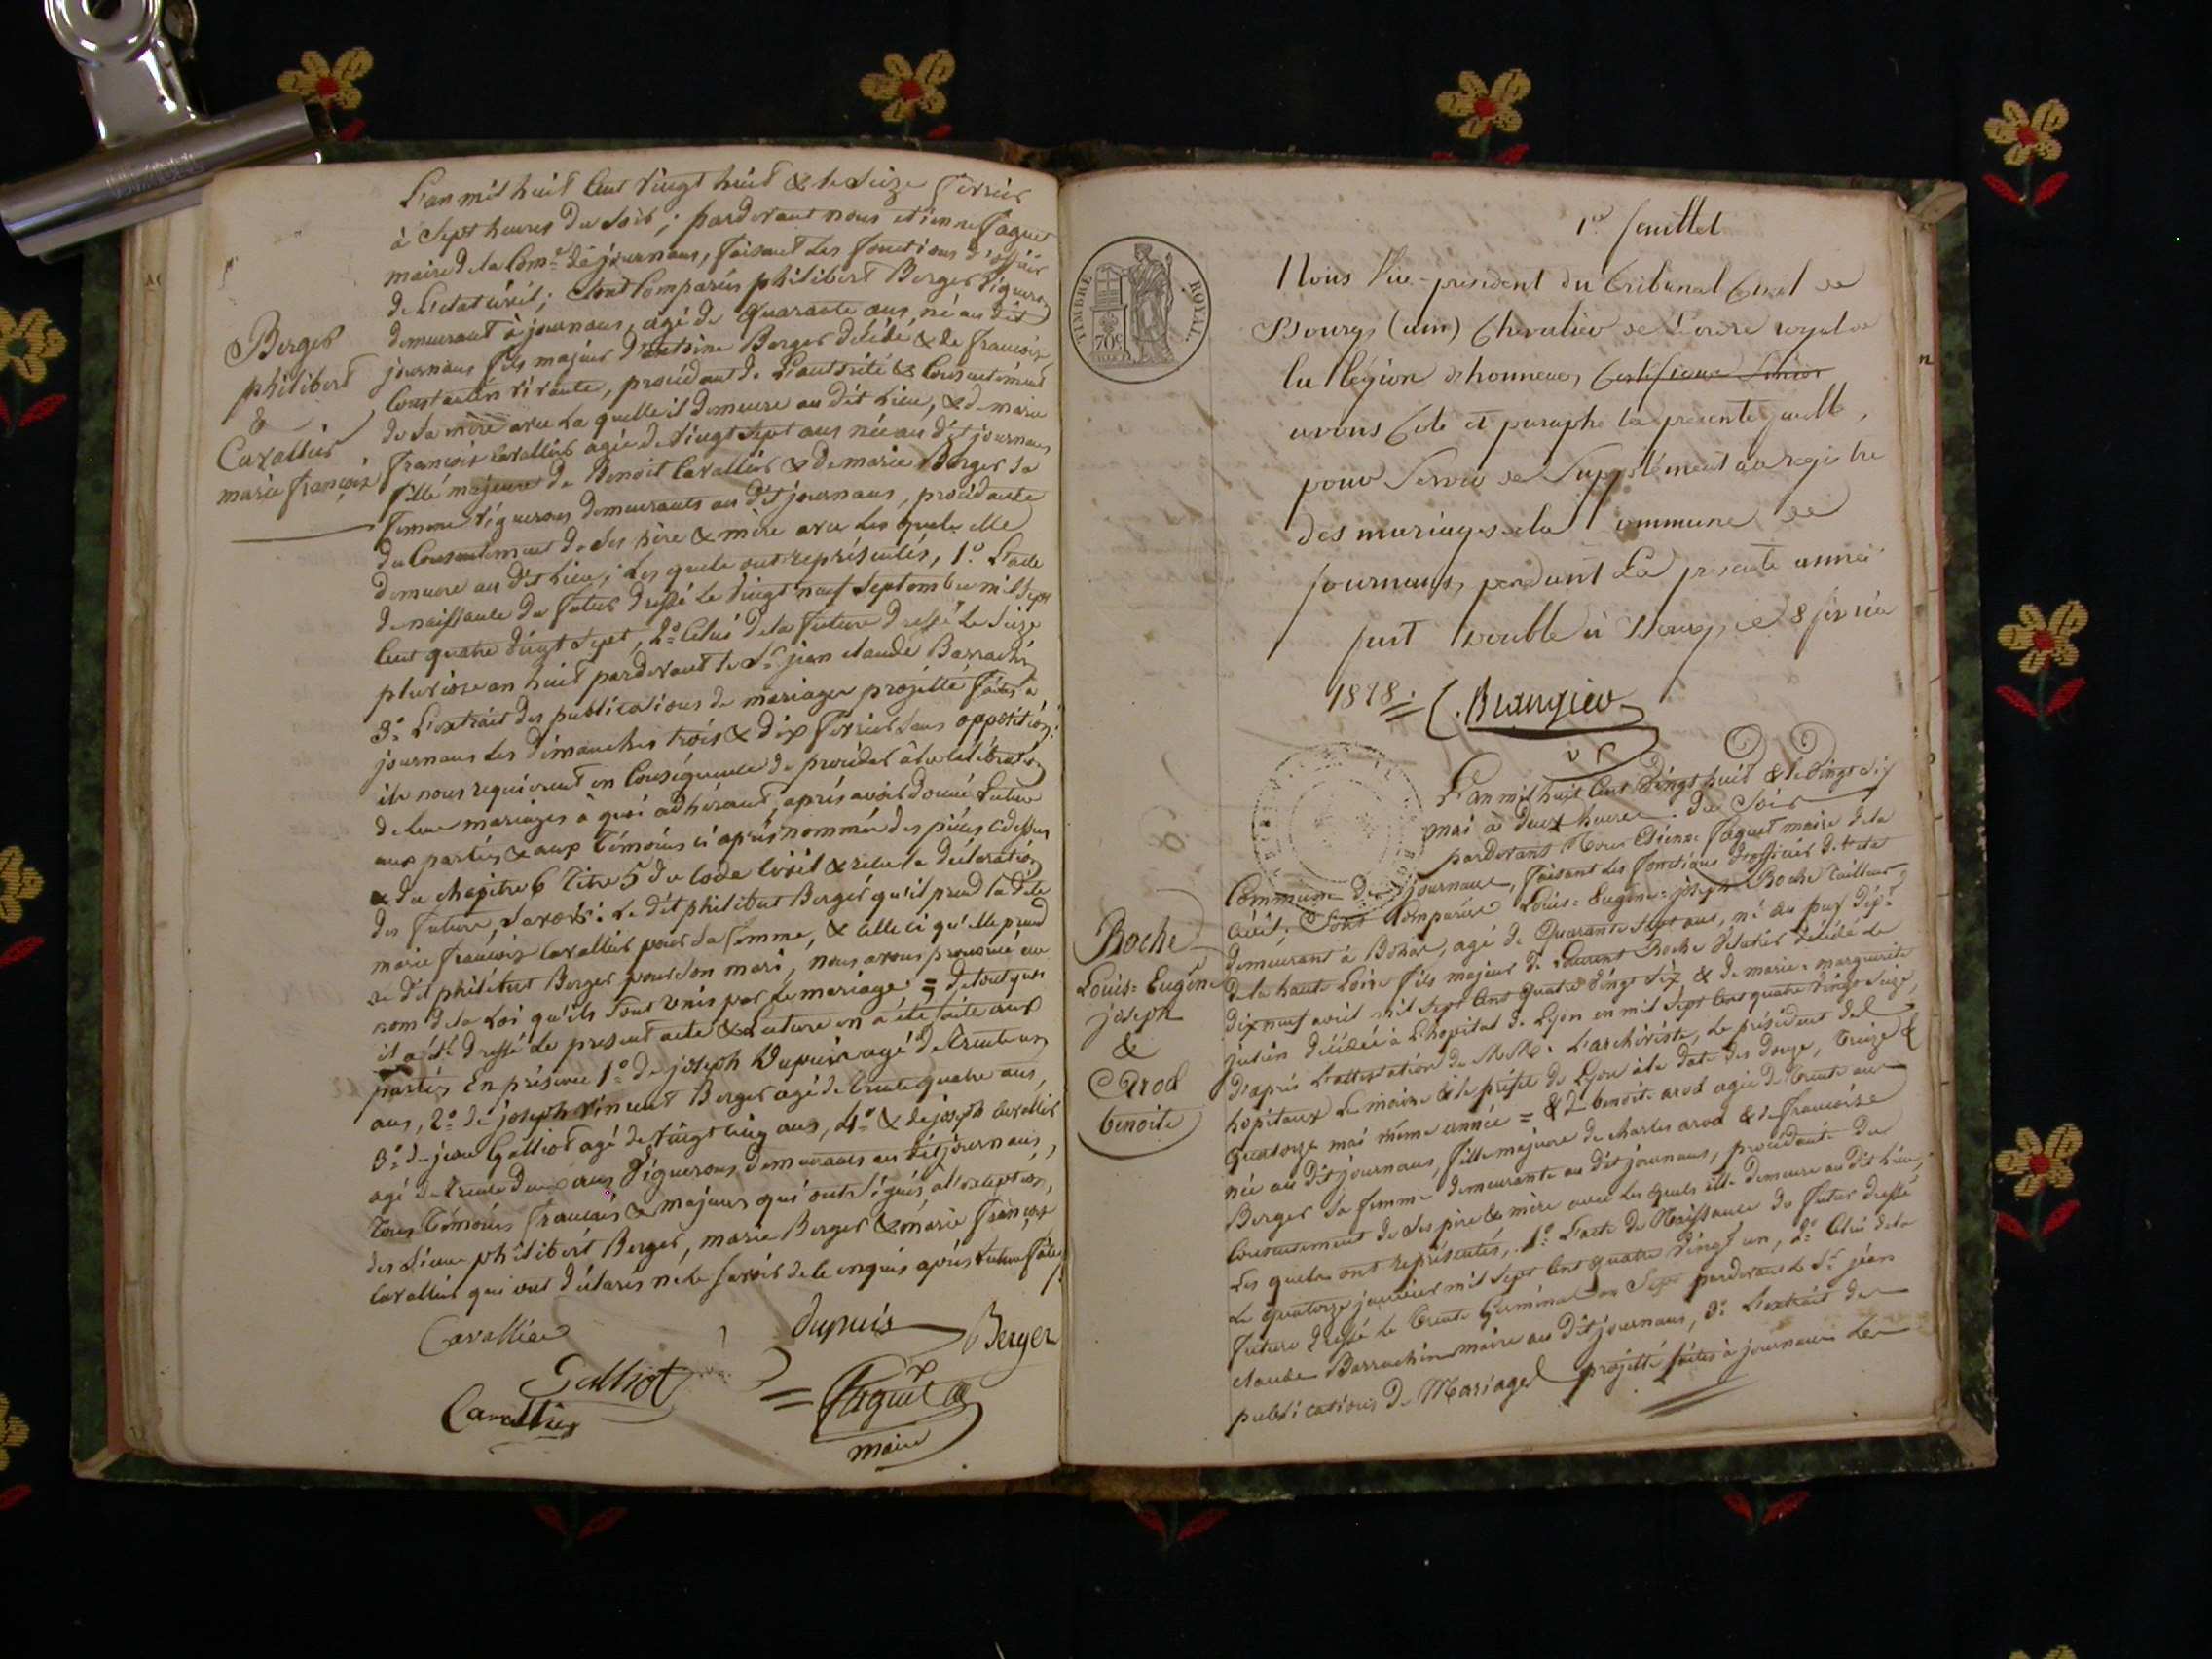 Berger
philibert
&
Cavallier
marie françoise
L'an mil huit Cent vingt huit & le Seize fevrier
à Sept heures du Soir ; pardevant nous etienne Paquet
maire de la Com.e de journans, faisant les fonctions d'officier
de L'etat Civil ; Sont Comparus philibert Berger vigneron
demeurant à journans, agé de Quarante ans, né au dit
journans fils majeur d'antoine Berger décédé & de francoise
Constantin vivante, procédant de L'autorité & Consentement
de Sa mère avec La quelle il demeure au dit Lieu, & de marie
françoise Cavallier agée de vingt Sept ans née au dit journans
fille majeure de Benoit Cavallier & de marie Berger Sa
femme vignerons demeurants au dit journans, procédante
du Consentement de Ses père & mère avec Les quels elle
demeure au dit Lieu ; Les quels ont représentés, 1.º L'acte
de naissance du futur dressé Le vingt neuf Septembre mil Sept
Cent quatre vingt Sept, 2.º Celui de la future dressé Le Seize
pluviose an huit pardevant le S.r jean claude Barrachin
3.º L'extrait des publications de mariage projetté faites à
journans Les dimanches trois & dix fevrier Sans opposition :
ils nous requierent en Conséquence de procéder à la Célébration
de Leur mariage à quoi adhérant, après avoir donné Lecture
aux parties & aux témoins ci après nommés des pièces ci dessus
& du chapitre 6 titre 5 du Code Civil & recu la déclaration
des future, Savoir : Le dit philibert Berger qu'il prend la dite
marie françoise Cavallier pour Sa femme, & Celle ci qu'elle prend
Le dit philibert Berger pour Son mari, nous avons prononcé au
nom de la Loi qu'ils Sont unis par Le mariage = de tout quoi
il a été dressé Le present acte & Lecture en a été faite aux
parties En présence 1.º de joseph Dupuis agé de trente un
ans, 2.º de joseph vincent Berger agé de trente quatre ans,
3.º de jean Galliot agé de vingt Cinq ans, 4.º & de joseph Cavallier
agé de trente deux ans vignerons demeurants au dit journans,
tous témoins francais & majeurs qui ont Signés, à l'exception
des Sieurs philibert Berger, marie Berger & marie françoise
Cavallier qui ont déclarés ne le Savoir de ce enquis après Lecture faite
Cavallier
dupuis
Berger
Galliot
Cavallier
Paquet
maire
1er feuillet
TIMBRE ROYAL
70c
Nous Vice-président du tribunal Civil de
Bourg (ain) Chevalier de L'ordre royal de
la légion d'honneur,
avons Coté et paraphé la présente feuille,
pour Servir de Supplément au registre
des mariages de la Commune de
journans, pendant La présente année
fait Double à Bourg, ce 8 février
1828.
V P
L'an mil huit Cent vingt huit & le vingt Six
mai à deux heures du Soir
pardevant Nous Etienne Paquet maire de la
Commune de journans, faisant les fonctions d'officier de l'etat
Civil ; Sont Comparus Louis = Eugène = joseph Roche tailleur
demeurant à Bohas, agé de Quarante Sept ans, né au puy dép.t
de la haute Loire fils majeur de Laurent Roche décédé le
dix neuf avril mil Sept Cent quatre vingt Six & de marie = marguerite
julien décédée à L'hopital de Lyon en mil Sept Cent quatre vingt Seize,
d'après L'attestation de MM. L'archiviste, Le président des
hopitaux Le maire & le préfet de Lyon à la date des douze, treize &
Quatorze mai même année = & de benoite arod agée de trente ans
née au dit journans, fille majeure de charles arod & de francoise
Berger Sa femme demeurante au dit journans, procédante du
Consentement de Ses père & mère avec Les quels elle demeure au dit Lieu,
Les quels ont représentés, 1.º L'acte de Naissance du futur dressé
Le quatorze janvier mil Sept Cent quatre vingt un, 2.º Celui de la
future dressé Le trente Germinal an Sept pardevant Le S.r jean
claude Barrachin maire au dit journans, 3.º L'extrait des
publications de Mariage projetté faites à journans Les
Roche
Louis = Eugène
joseph
&
Arod
benoite